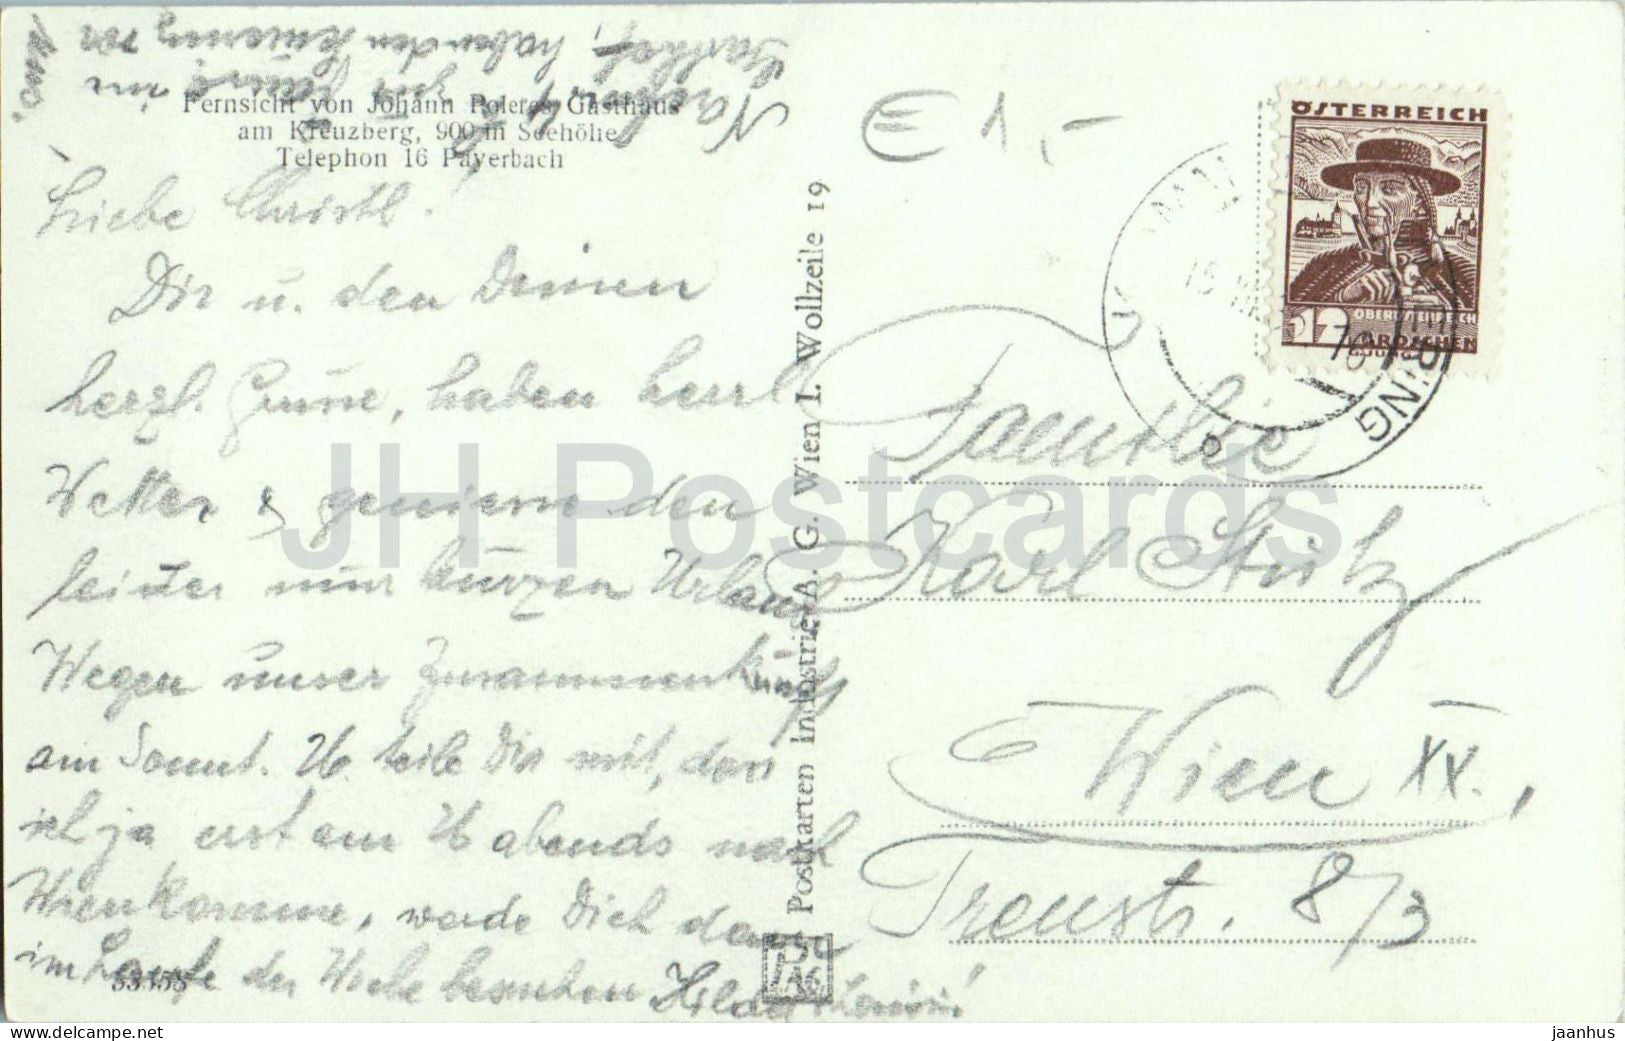 Fernsicht von Johann Poleres Gasthaus
am Kreuzberg, 900 m Seehöhe
Telephon 16 Payerbach
Liebe Christl!
Dir u. den Deinen
herzl. Grüsse, haben herrl
Wetter & geniessen den
leider nur kurzen Urlaub
Wegen unser Zusammenkunft
am Sonnt. 26 teile Dir mit, dass
ich ja erst am 26 abends nach
Wien komme, werde Dich dann
im Laufe der Woche besuchen
haben den
33355
Postkarten Industrie A. G. Wien I. Wollzeile 19
PAG
€ 1,-
ÖSTERREICH
OBERÖSTERREICH
12 GROSCHEN
RING
Familie
Karl Stütz
Wien XX.,
Treustr. 8/3
JH Postcards
www.delcampe.net
jaanhus